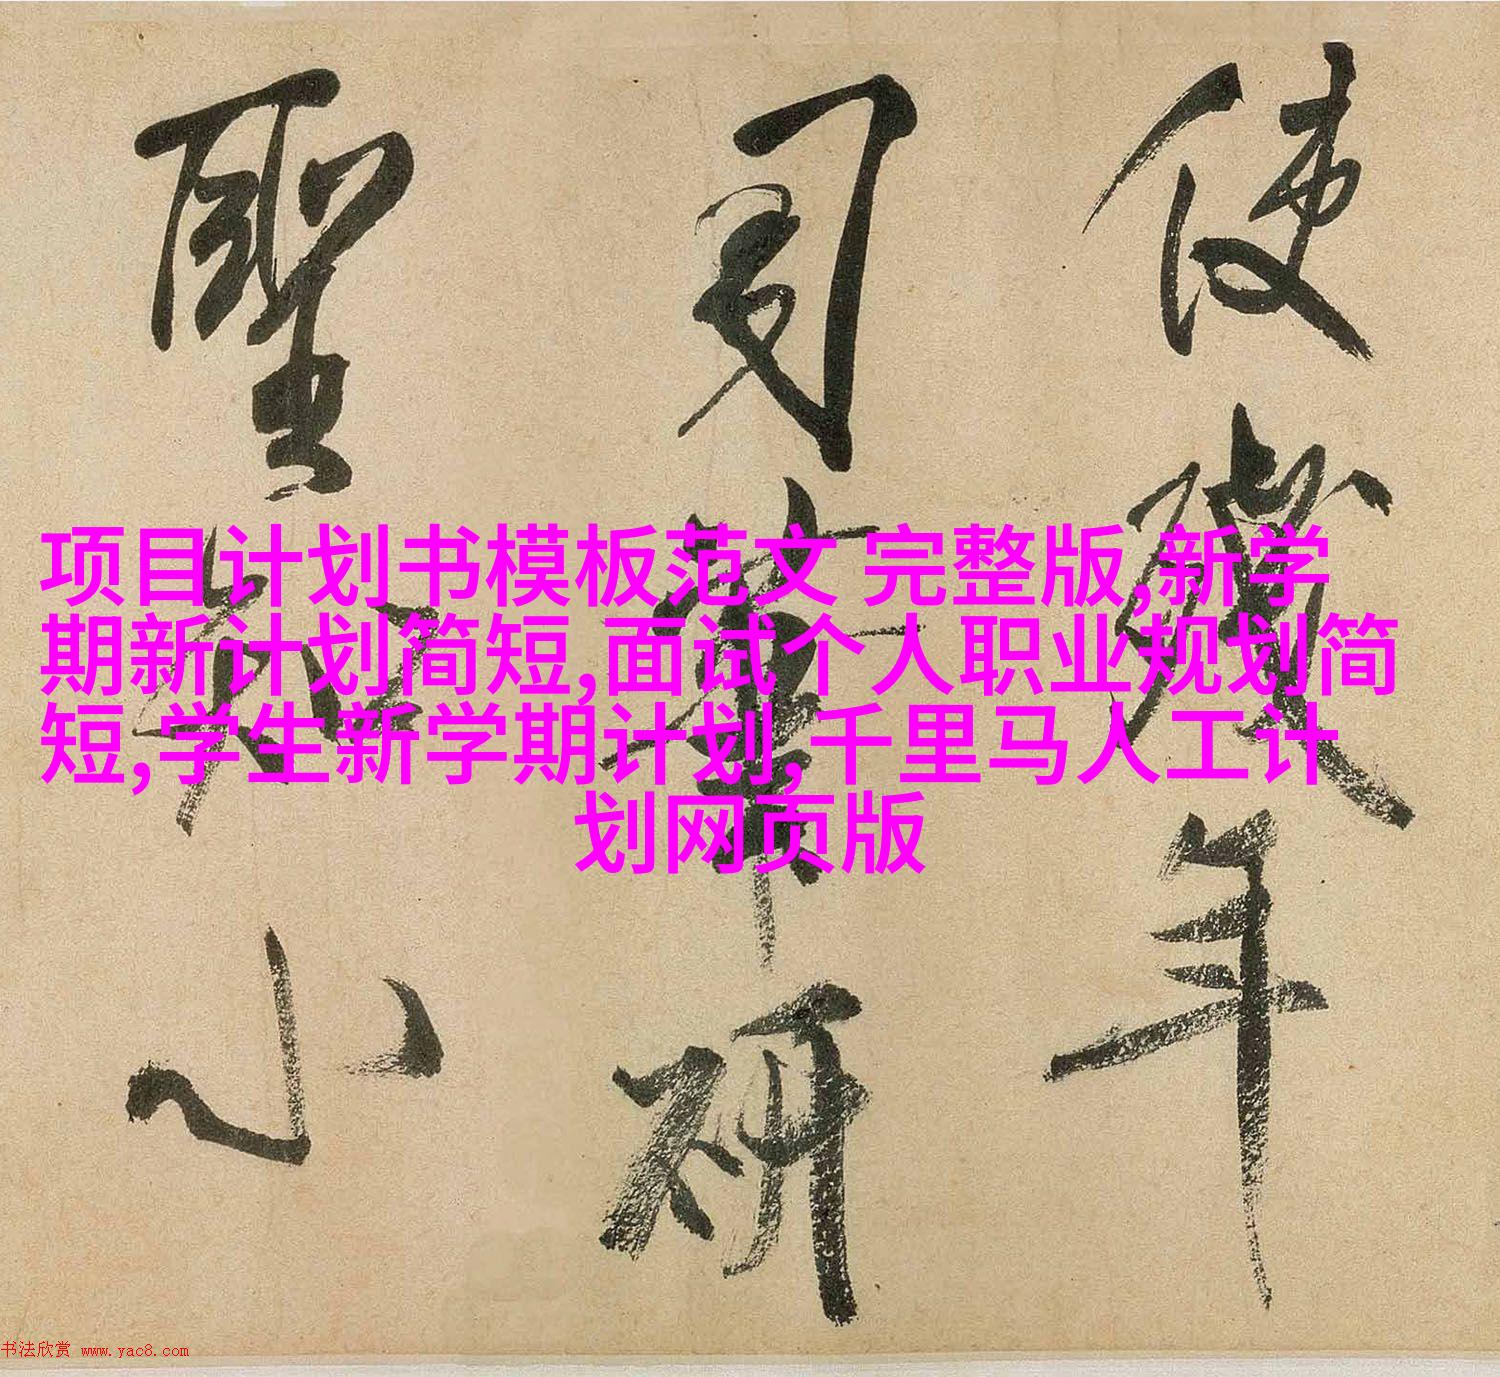 使殘年
司筆研
聖知小
项目计划书模板范文 完整版,新学
期新计划简短,面试个人职业规划简
短,学生新学期计划,千里马人工计
划网页版
书法欣赏 www.yac8.com